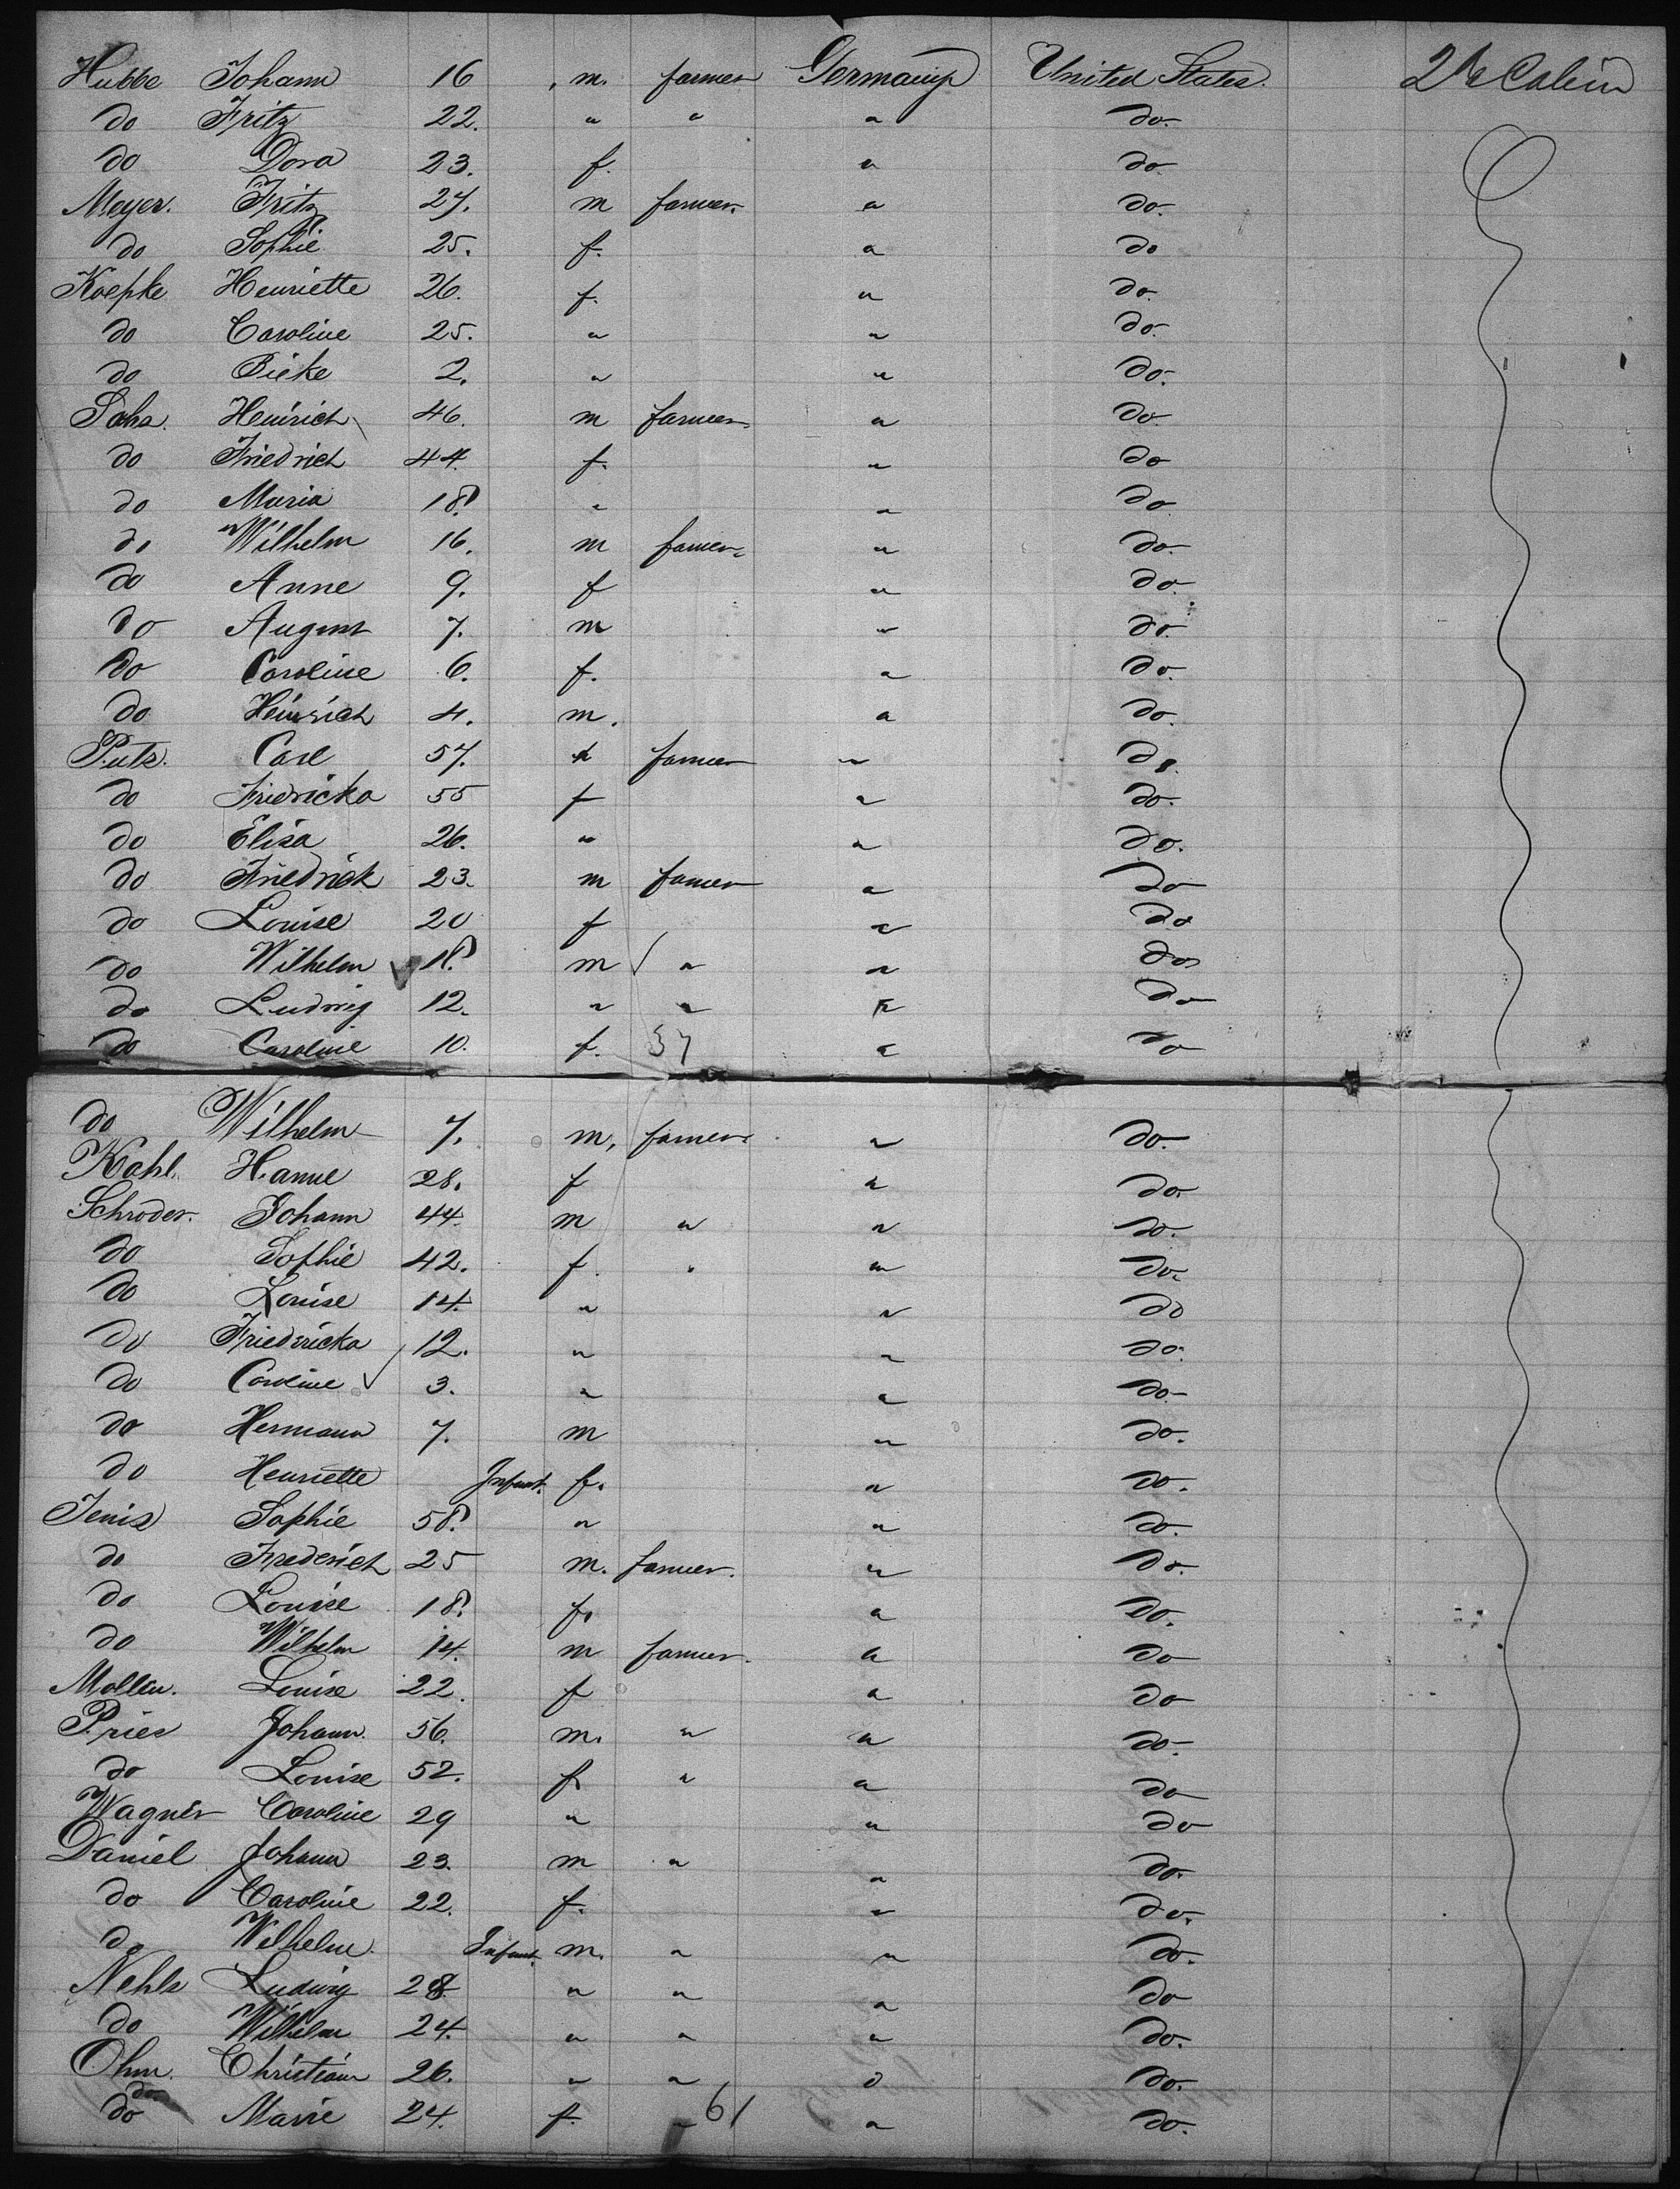 Hubbe Johann 16 m. farmer Germany United States. 2de Cabin
do Fritz 22. " " " do.
do Dora 23. f. " do.
Meyer. Fritz 27. m farmer. " do.
do Sophie 25. f. " do
Koepke Henriette 26. f. " do.
do Caroline 25. " " do.
do Rieke 2. " " do.
Sahs. Heinrich 46. m farmer. " do.
do Friedrich 44. f. " do
do Maria 18. " " do
do Wilhelm 16. m farmer. " do.
do Anne 9. f " do.
do August 7. m " do.
do Caroline 6. f. " do.
do Heinrich 4. m. " do.
Puts. Carl 57. farmer " do.
do Friedricka 55 f " do.
do Elisa 26. " " do.
do Friedrick 23. m farmer " do
do Louise 20 f " do
do Wilhelm 18. m " " do
do Ludwig 12. " " " do
do Caroline 10. f. 57 " do
do Wilhelm 7. m. farmer. " do.
Kahl. Hanne 28. f " do.
Schroder. Johann 44. m " " do.
do Sophie 42. f. " " do.
do Louise 14. " " do
do Friedricka 12. " " do.
do Caroline 3. " " do.
do Hermann 7. m " do.
do Henriette Infant. f. " do.
Jenis Sophie 58. " " do.
do Frederich 25 m. farmer. " do.
do Louise 18. f. " do.
do Wilhelm 14. m farmer. " do
Mollin. Louise 22. f " do
Pries Johann. 56. m. " " do.
do Louise 52. f. " " do
Wagner Caroline 29 " " do
Daniel Johann 23. m " " do.
do Caroline 22. f. " do.
do Wilhelm. Infant. m. " " do.
Nehls Ludwig 28 " " " do
do Wilhelm 24. " " " do.
Ohm. Christian 26. " " " do.
do Marie 24. f. " 61 " do.